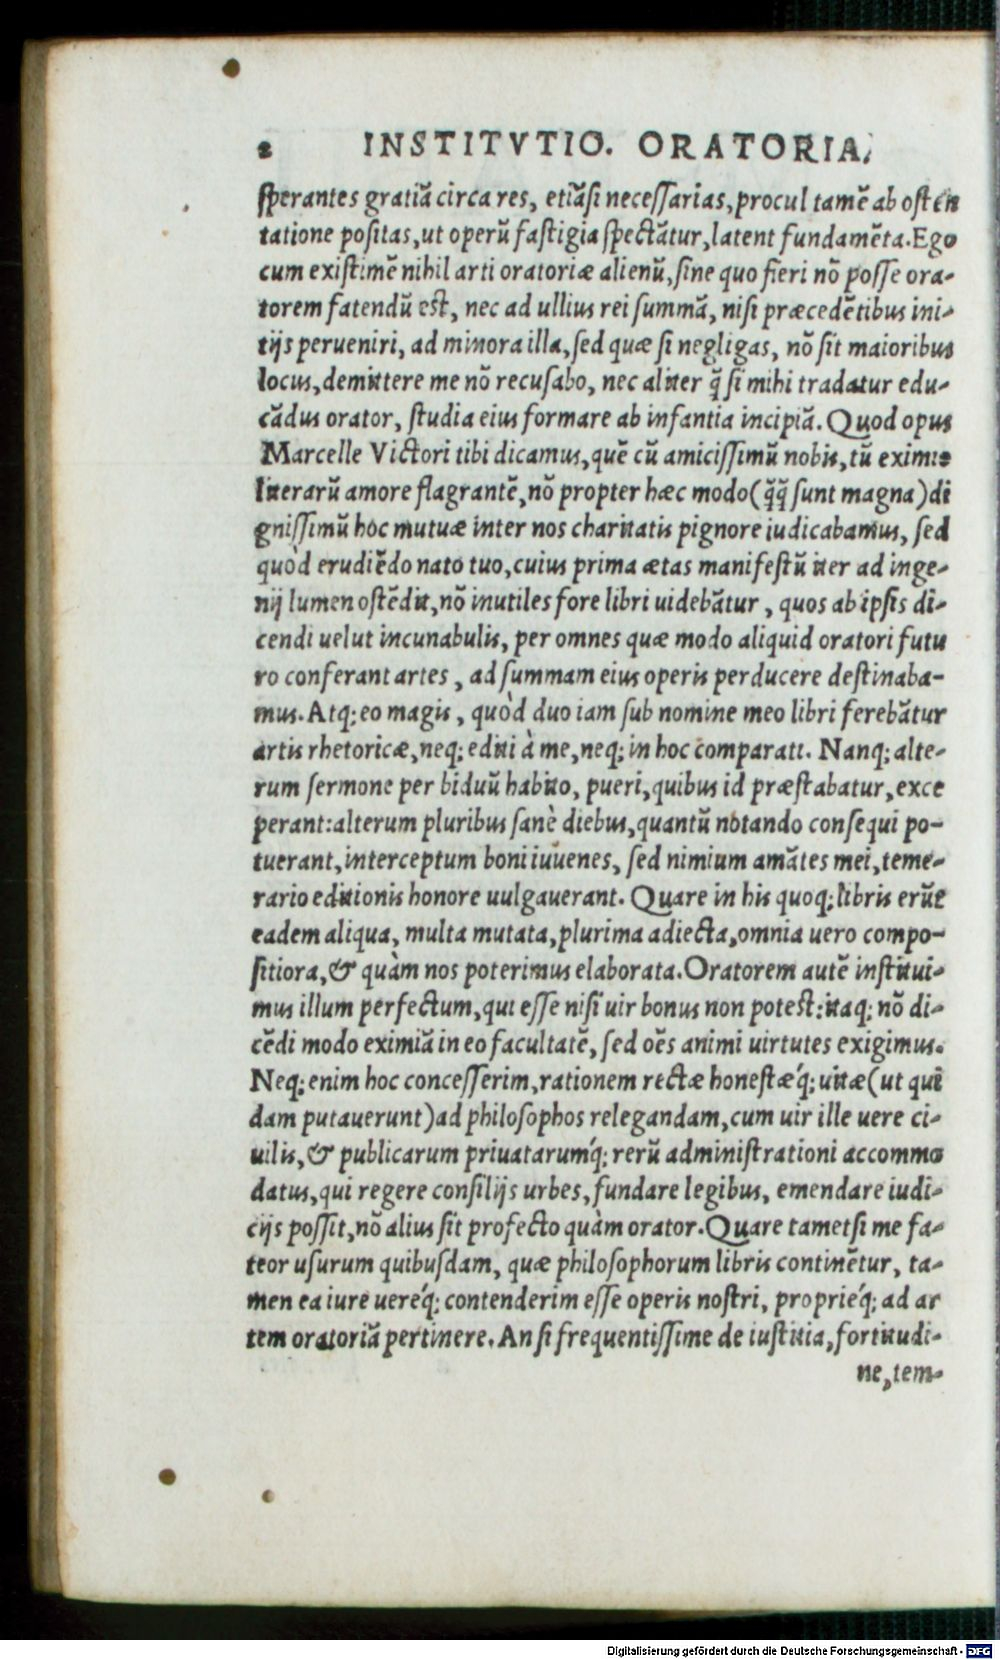 2 INSTITVTIO. ORATORIA.
sperantes gratiã circa res, etiãsi necessarias, procul tamẽ ab osten
tatione positas, ut operũ fastigia spectãtur, latent fundamẽta. Ego
cum existimẽ nihil arti oratoriæ alienũ, sine quo fieri nõ posse ora-
torem fatendũ est, nec ad ullius rei summã, nisi præcedẽtibus ini-
tijs perueniri, ad minora illa, sed quæ si negligas, nõ sit maioribus
locus, demittere me nõ recusabo, nec aliter q̃ si mihi tradatur edu-
cãdus orator, studia eius formare ab infantia incipiã. Quod opus
Marcelle Victori tibi dicamus, quẽ cũ amicissimũ nobis, tũ eximio
literarũ amore flagrantẽ, nõ propter hæc modo (q̃q̃ sunt magna) di
gnissimũ hoc mutuæ inter nos charitatis pignore iudicabamus, sed
quòd erudiẽdo nato tuo, cuius prima ætas manifestũ iter ad inge-
nij lumen ostẽdit, nõ inutiles fore libri uidebãtur, quos ab ipsis di-
cendi uelut incunabulis, per omnes quæ modo aliquid oratori futu
ro conferant artes, ad summam eius operis perducere destinaba-
mus. Atq; eo magis, quòd duo iam sub nomine meo libri ferebãtur
artis rhetoricæ, neq; editi à me, neq; in hoc comparati. Nanq; alte-
rum sermone per biduũ habito, pueri, quibus id præstabatur, exce
perant: alterum pluribus sanè diebus, quantũ notando consequi po-
tuerant, interceptum boni iuuenes, sed nimium amãtes mei, teme-
rario editionis honore uulgauerant. Quare in his quoq; libris erũt
eadem aliqua, multa mutata, plurima adiecta, omnia uero compo-
sitiora, & quàm nos poterimus elaborata. Oratorem autẽ institui-
mus illum perfectum, qui esse nisi uir bonus non potest: itaq; nõ di-
cẽdi modo eximiã in eo facultatẽ, sed oẽs animi uirtutes exigimus.
Neq; enim hoc concesserim, rationem rectæ honestæq́; uitæ (ut qui
dam putauerunt) ad philosophos relegandam, cum uir ille uere ci-
uilis, & publicarum priuatarumq́; rerũ administrationi accommo
datus, qui regere consilijs urbes, fundare legibus, emendare iudi-
cijs possit, nõ alius sit profecto quàm orator. Quare tametsi me fa-
teor usurum quibusdam, quæ philosophorum libris continẽtur, ta-
men ea iure uereq́; contenderim esse operis nostri, proprieq́; ad ar
tem oratoriã pertinere. An si frequentissime de iustitia, fortitudi-
ne, tem-
Digitalisierung gefördert durch die Deutsche Forschungsgemeinschaft - DFG